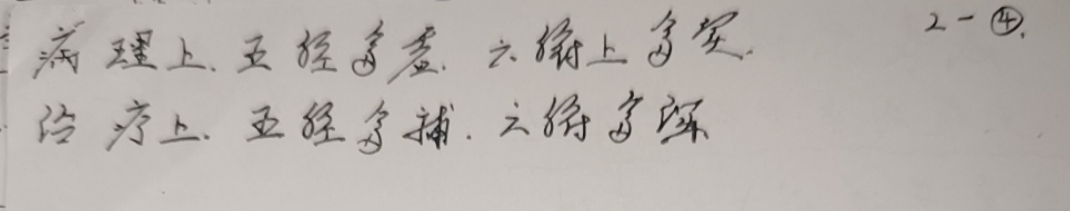 病理上.五脏多虚.六腑上多实. 2-④.
治疗上.五脏多補.六腑多泻